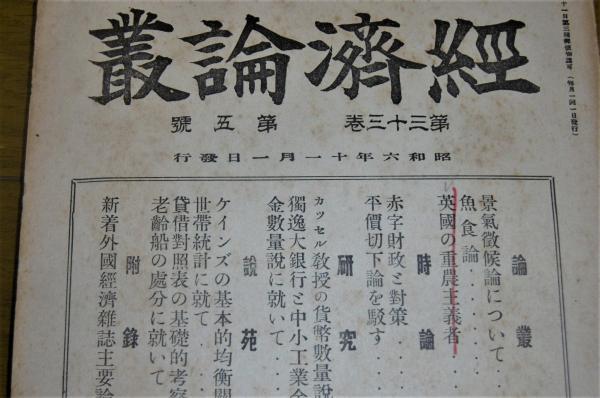 十一日第三種郵便物認可 (每月一回一日發行)
經濟論叢
第三十三卷 第五號
昭和六年十一月一日發行
論叢
景氣徵候論について
魚食論
英國の重農主義者
時論
赤字財政と對策
平價切下論を駁す
研究
カッセル敎授の貨幣數量說
獨逸大銀行と中小工業金
金數量說に就いて
說苑
ケインズの基本的均衡關
世帶統計に就て
貸借對照表の基礎的考察
老齡船の處分に就いて
附錄
新着外國經濟雜誌主要論